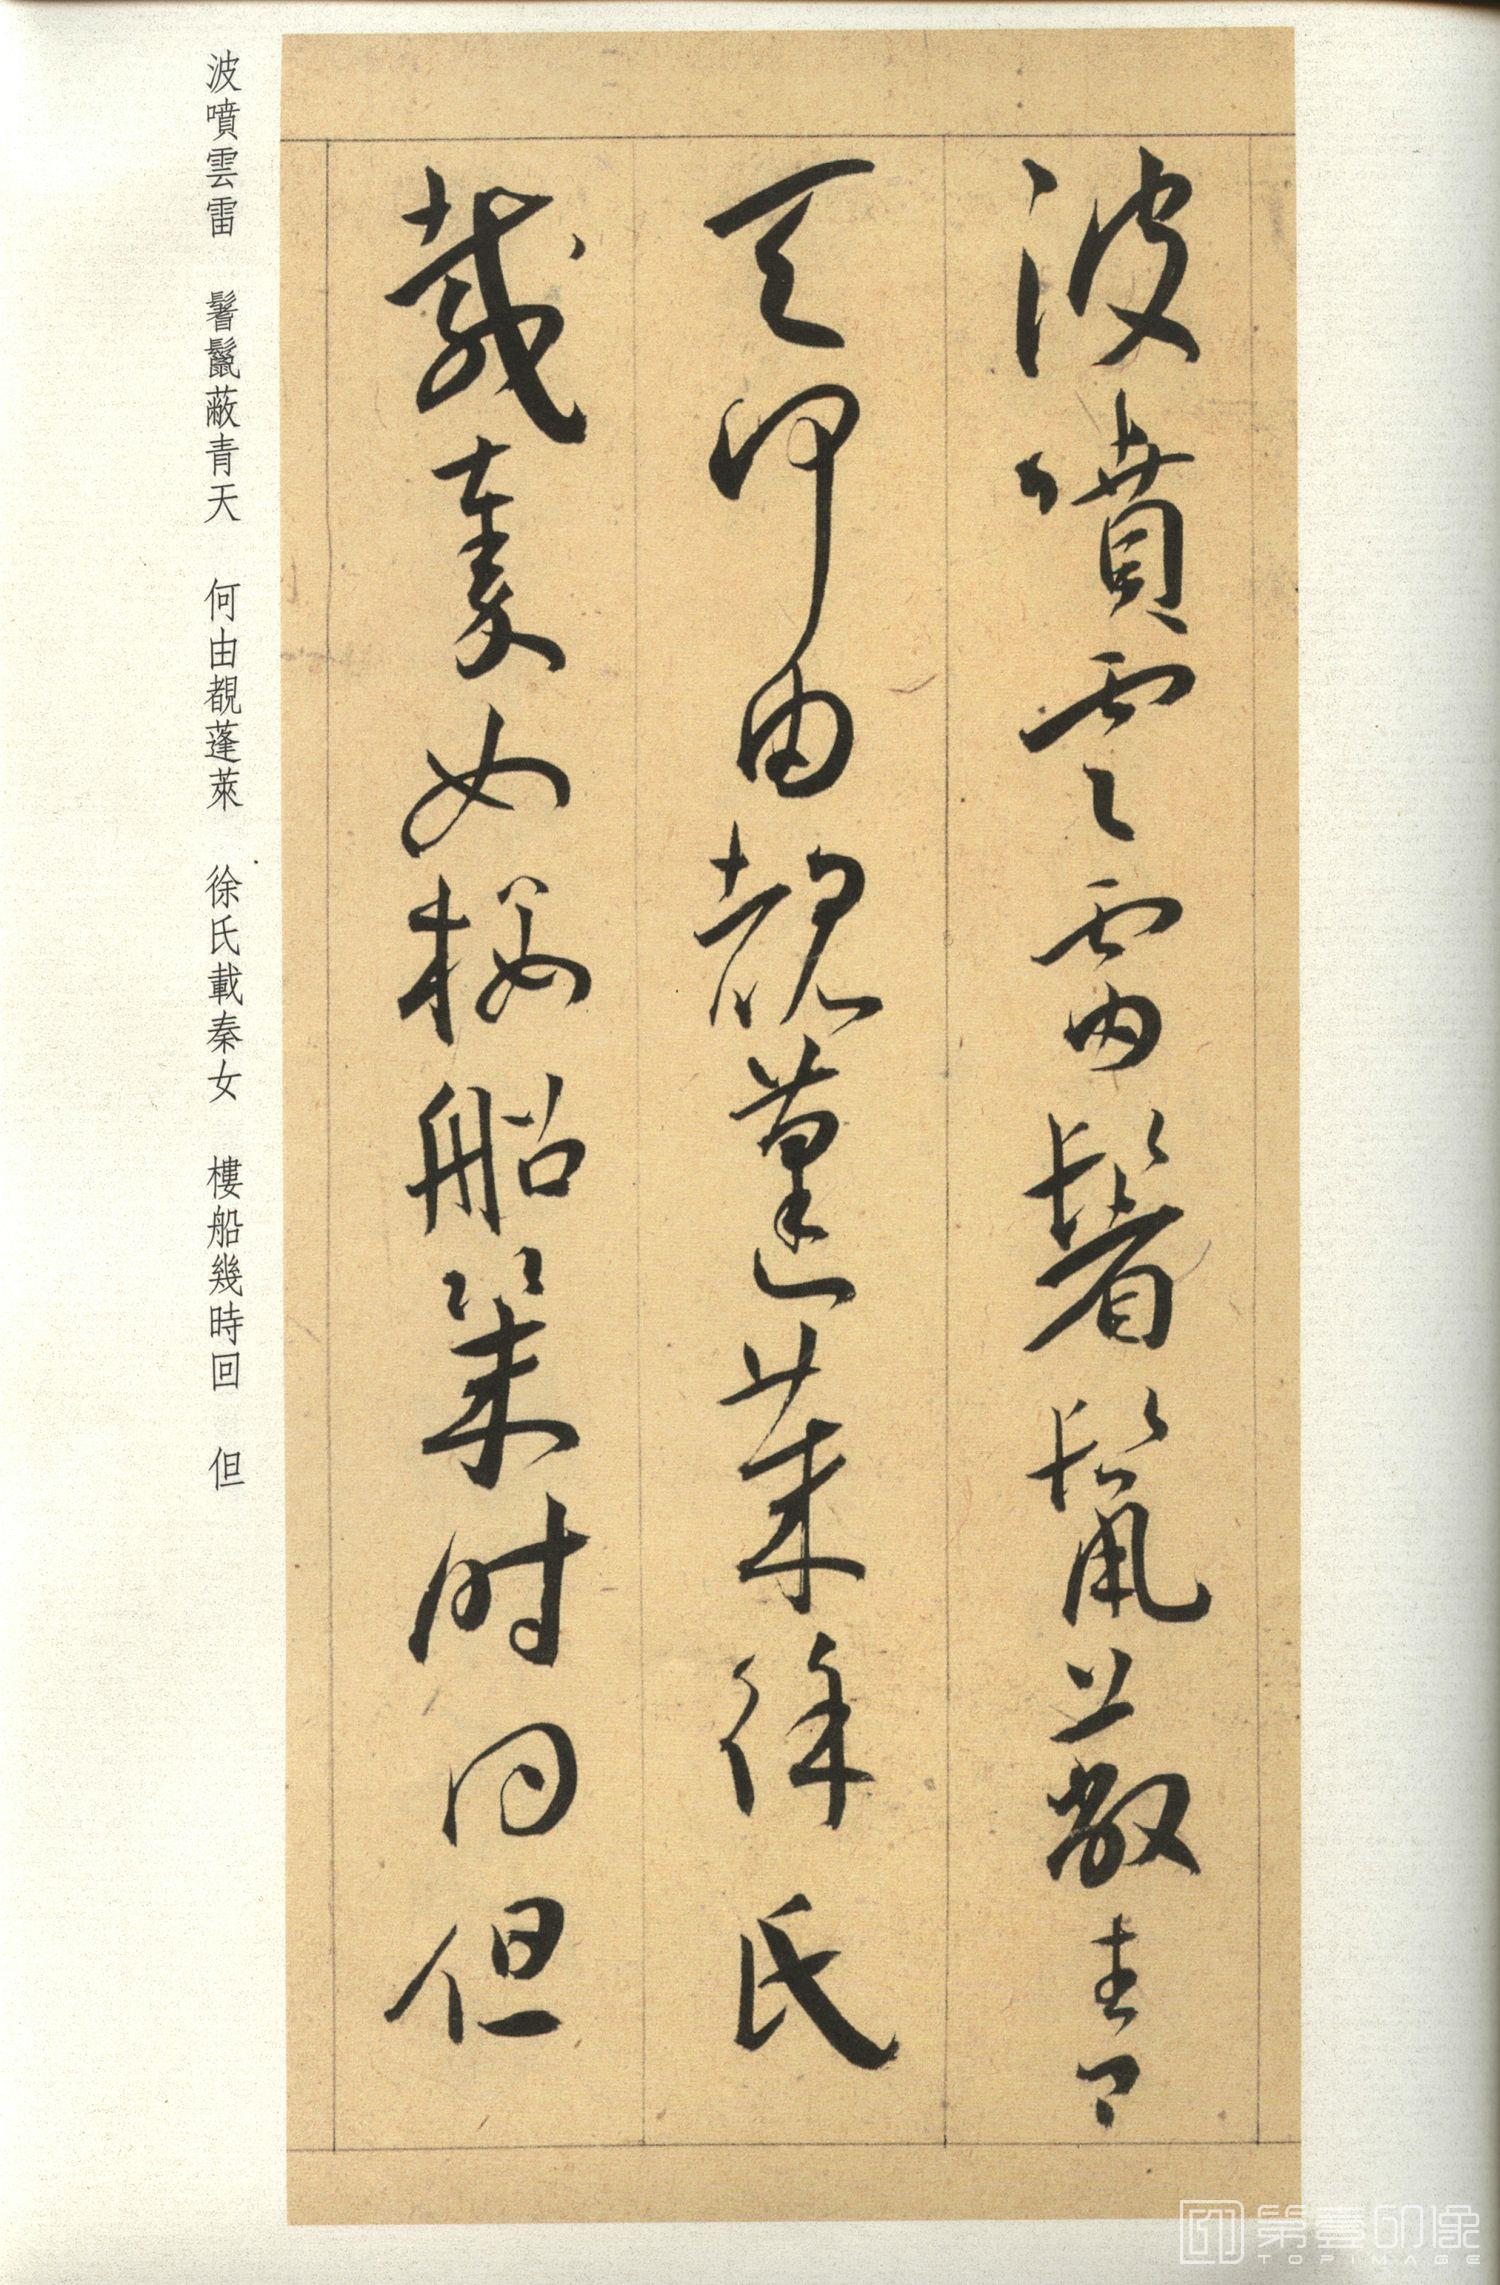 波噴雲雷髻鬣蔽青
天何由覩蓬萊徐氏
載秦女樓船幾時回但
波噴雲雷　髻鬣蔽青天　何由覩蓬萊　徐氏載秦女　樓船幾時回　但
第壹印像
TOPIMAGE